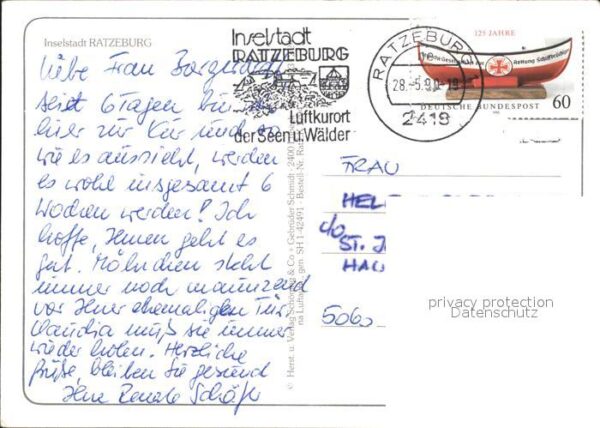 Inselstadt RATZEBURG
Liebe Frau
seit 6 Tagen bin ich
hier zur Kur und so
wie es aussieht, werden
es wohl insgesamt 6
Wochen werden! Ich
hoffe, Ihnen geht es
gut. Möhrchen steht
immer noch maunzend
vor Ihrer ehemaligen Tür
Claudia muß sie immer
wieder holen. Herzliche
Grüße, bleiben Sie gesund
Ihre Renate Schäfer
Inselstadt
RATZEBURG
Luftkurort
der Seen u. Wälder
RATZEBURG
28.-5.90-18
2418
125 JAHRE
Rettung Schiffbrüchiger
DEUTSCHE BUNDESPOST
60
© Herst. u. Verlag Schöning & Co + Gebrüder Schmidt · 2400
na Luftbild, gen. SH 1-42491 - Bestell-Nr. Rat
FRAU
c/o
ST. J
5060
privacy protection
Datenschutz